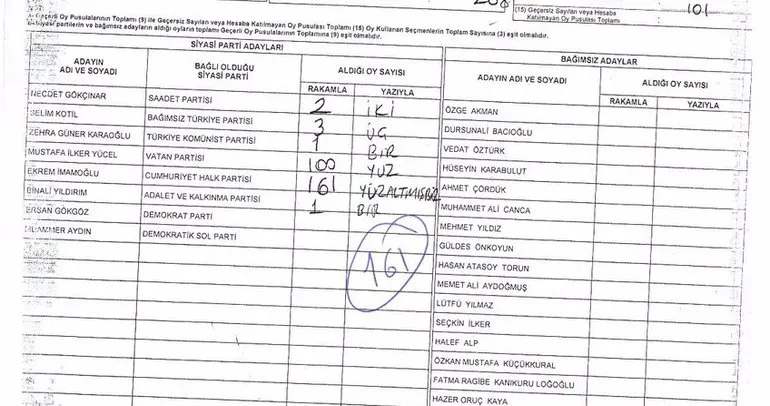 (15) Geçersiz Sayılan veya Hesaba
Katılmayan Oy Pusulası Toplamı
101
Geçerli Oy Pusulalarının Toplamını (9) ile Geçersiz Sayılan veya Hesaba Katılmayan Oy Pusulası Toplamı (15) Oy Kullanan Seçmenlerin Toplam Sayısına (3) eşit olmalıdır.
Siyasi partilerin ve bağımsız adayların aldığı oyların toplamı Geçerli Oy Pusulalarının Toplamına (9) eşit olmalıdır.
SİYASİ PARTİ ADAYLARI
BAĞIMSIZ ADAYLAR
ADAYIN ADI VE SOYADI
BAĞLI OLDUĞU SİYASİ PARTİ
ALDIĞI OY SAYISI
ADAYIN ADI VE SOYADI
ALDIĞI OY SAYISI
RAKAMLA YAZIYLA
RAKAMLA YAZIYLA
NECDET GÖKÇINAR SAADET PARTİSİ 2 İKİ
SELİM KOTİL BAĞIMSIZ TÜRKİYE PARTİSİ 3 ÜÇ
ZEHRA GÜNER KARAOĞLU TÜRKİYE KOMÜNİST PARTİSİ 1 BİR
MUSTAFA İLKER YÜCEL VATAN PARTİSİ 100 YÜZ
EKREM İMAMOĞLU CUMHURİYET HALK PARTİSİ 161 YÜZALTMIŞBİR
BİNALİ YILDIRIM ADALET VE KALKINMA PARTİSİ 1 BİR
ERSAN GÖKGÖZ DEMOKRAT PARTİ
MUAMMER AYDIN DEMOKRATİK SOL PARTİ
161
ÖZGE AKMAN
DURSUNALİ BACIOĞLU
VEDAT ÖZTÜRK
HÜSEYİN KARABULUT
AHMET ÇORDÜK
MUHAMMET ALİ CANCA
MEHMET YILDIZ
GÜLDES ÖNKOYUN
HASAN ATASOY TORUN
MEMET ALİ AYDOĞMUŞ
LÜTFÜ YILMAZ
SEÇKİN İLKER
HALEF ALP
ÖZKAN MUSTAFA KÜÇÜKKURAL
FATMA RAGİBE KANIKURU LOĞOĞLU
HAZER ORUÇ KAYA